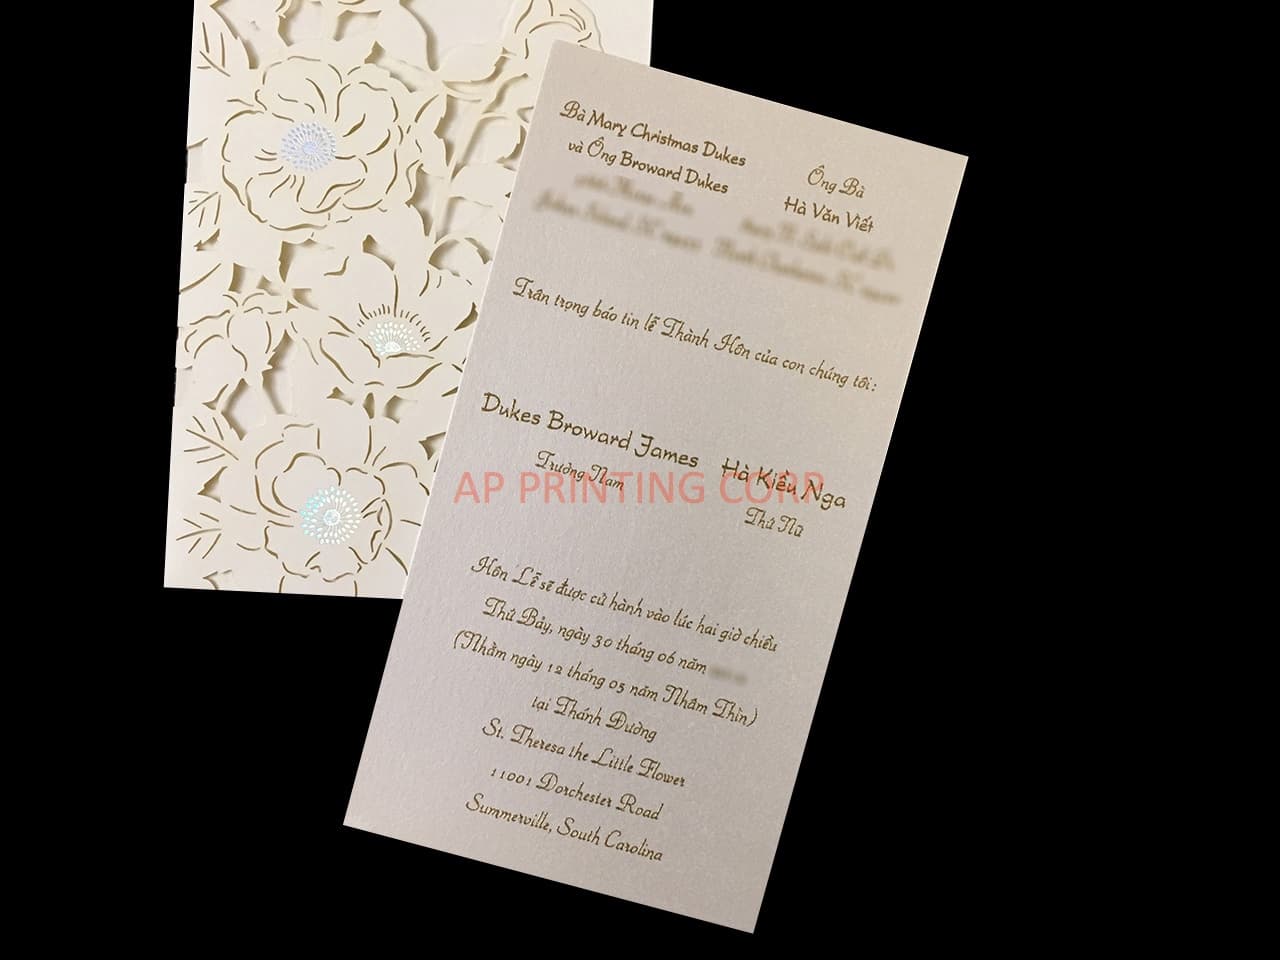 Bà Mary Christmas Dukes
và Ông Broward Dukes
Ông Bà
Hà Văn Viết
Trân trọng báo tin lễ Thành Hôn của con chúng tôi:
Dukes Broward James
Trưởng Nam
Hà Kiều Nga
Thứ Nữ
AP PRINTING CORP
Hôn Lễ sẽ được cử hành vào lúc hai giờ chiều
Thứ Bảy, ngày 30 tháng 06 năm
(Nhằm ngày 12 tháng 05 năm Nhâm Thìn)
tại Thánh Đường
St. Theresa the Little Flower
11001 Dorchester Road
Summerville, South Carolina